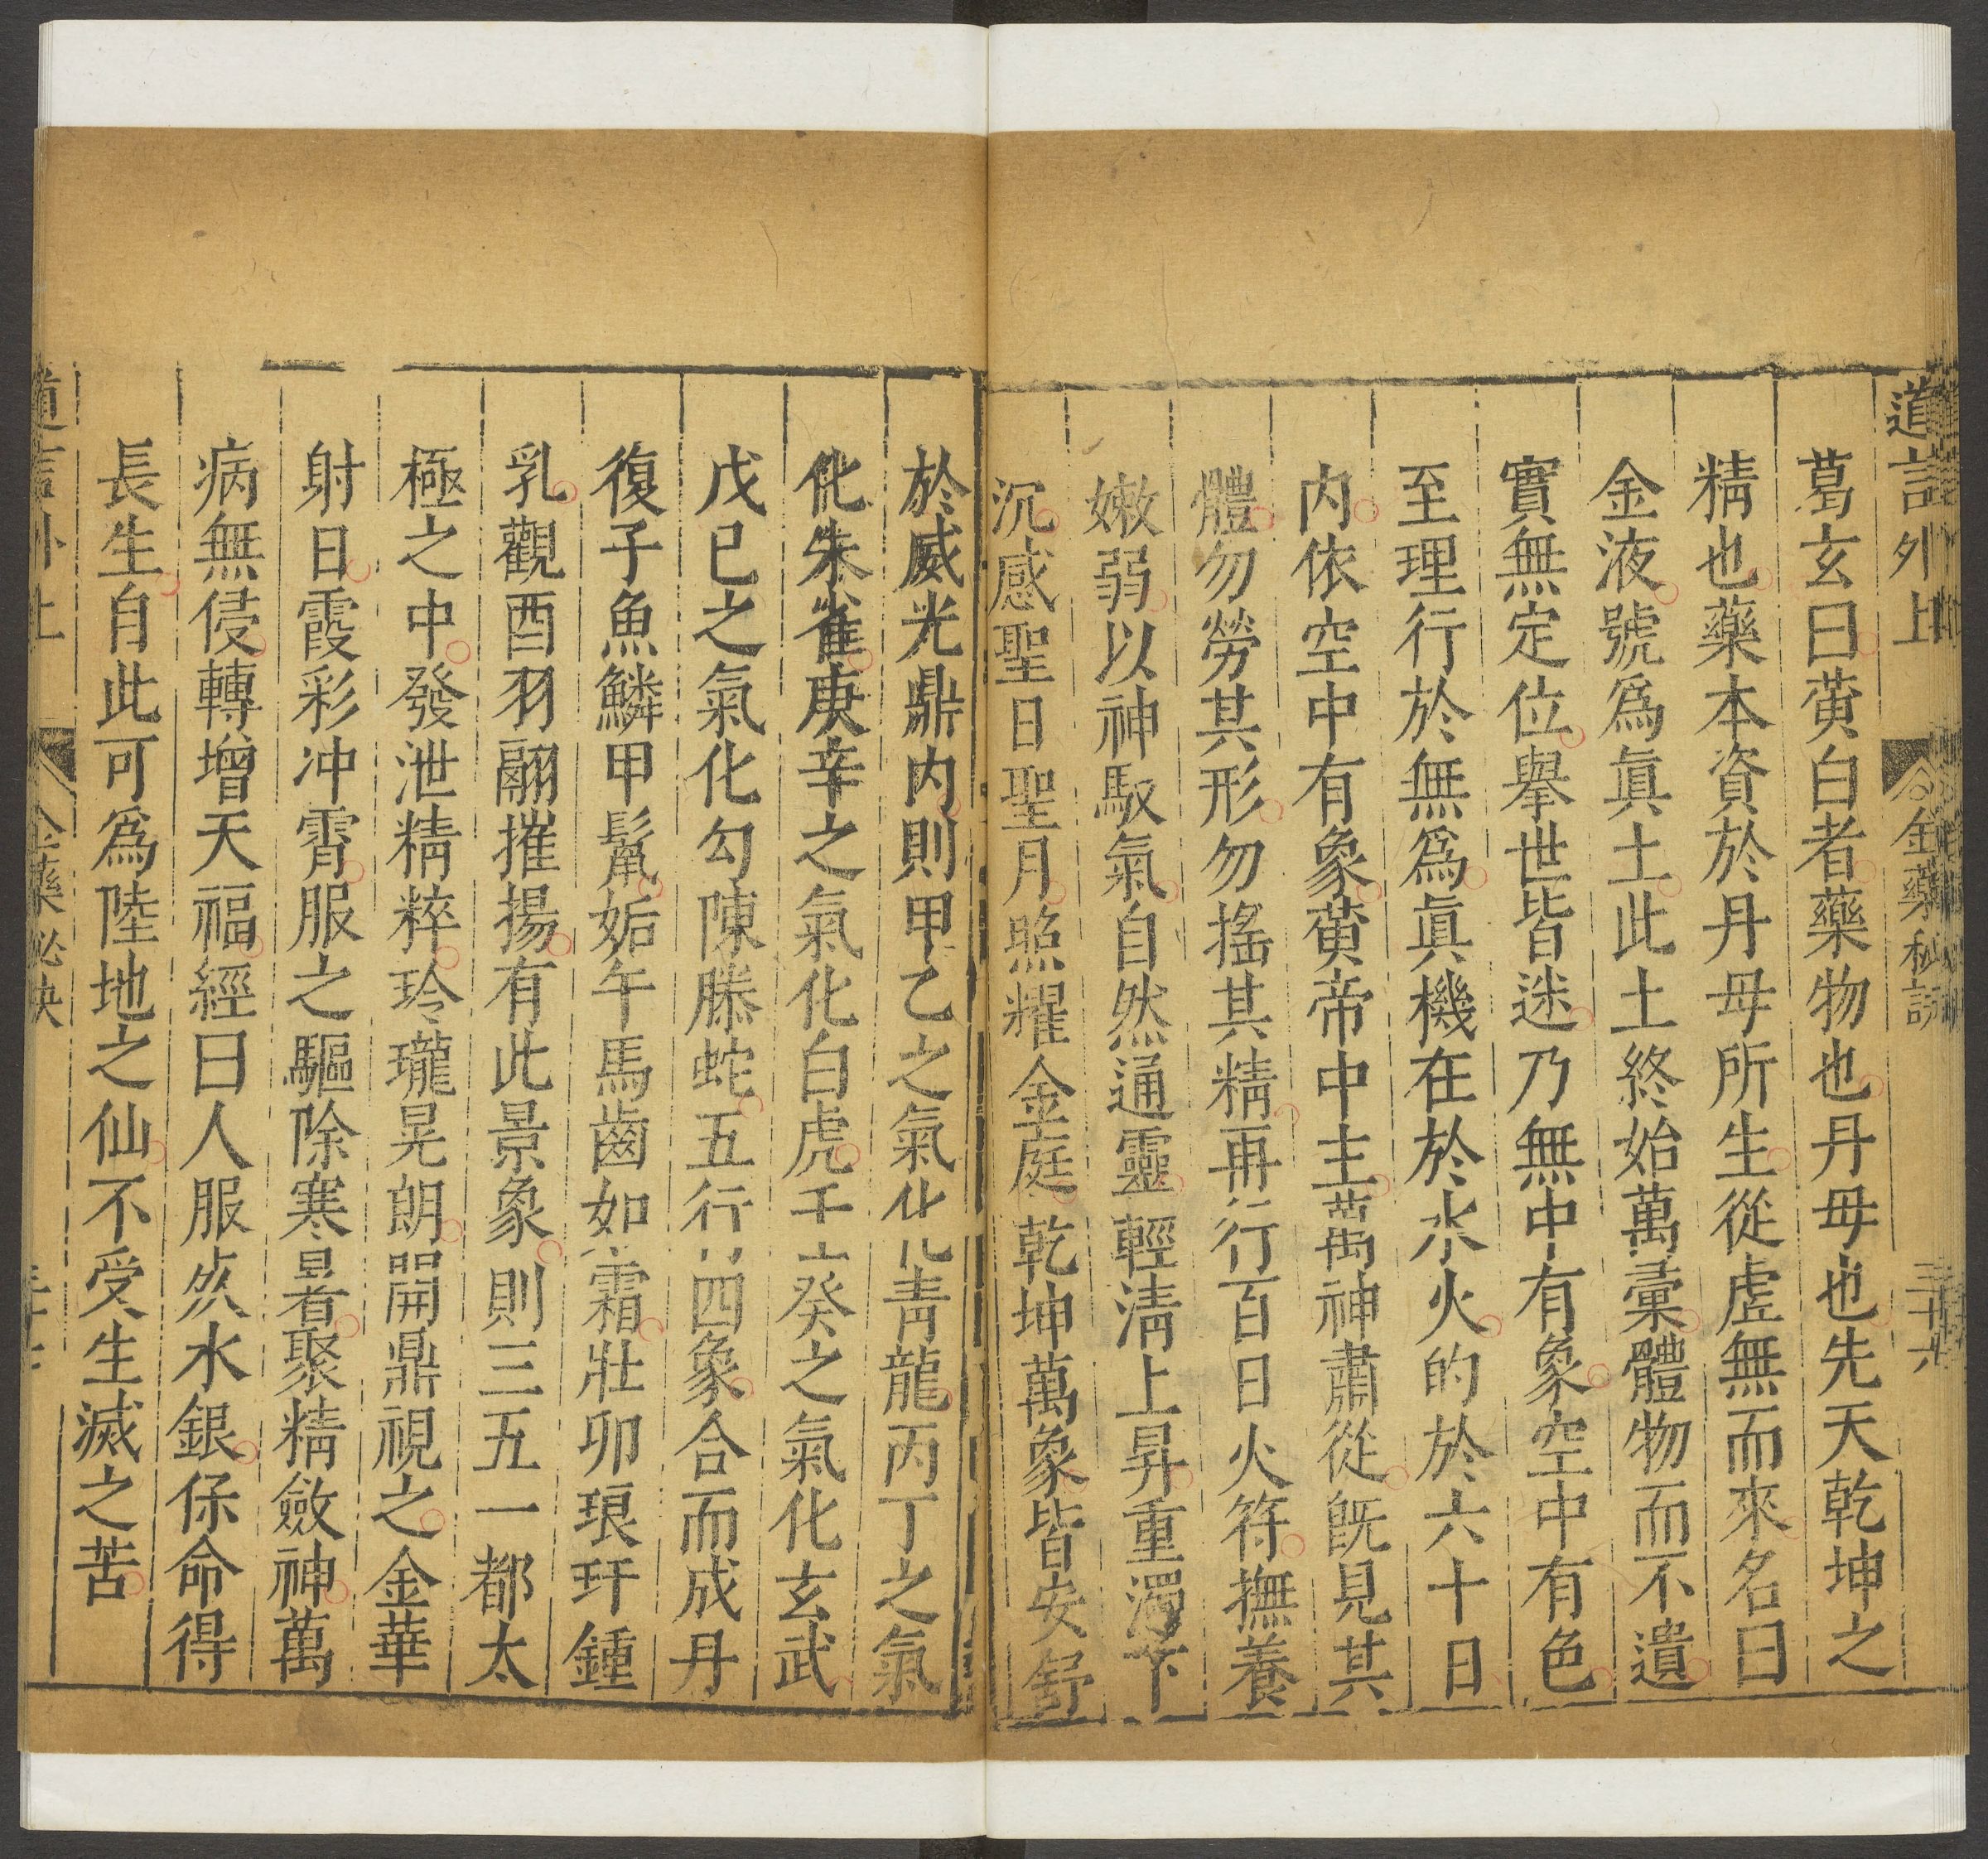 道言外上 金藥秘訣 三十六
葛玄曰黃白者藥物也丹母也先天乾坤之
精也藥本資於丹母所生從虛無而來名曰
金液號爲眞土此土終始萬彙體物而不遺
實無定位舉世皆迷乃無中有象空中有色
至理行於無爲眞機在於水火的於六十日
内依空中有象黃帝中主萬神肅從旣見其
體勿勞其形勿搖其精再行百日火符撫養
嫩弱以神馭氣自然通靈輕淸上昇重濁下
沉感聖日聖月照耀金庭乾坤萬象皆安舒
於威光鼎内則甲乙之氣化靑龍丙丁之氣
化朱雀庚辛之氣化白虎壬癸之氣化玄武
戊已之氣化勾陳騰蛇五行四象合而成丹
復子魚鱗甲鬣姤午馬齒如霜壯卯琅玕鍾
乳觀酉羽翮摧揚有此景象則三五一都太
極之中發泄精粹玲瓏晃朗開鼎視之金華
射日霞彩冲霄服之驅除寒暑聚精斂神萬
病無侵轉增天福經曰人服炁水銀保命得
長生自此可爲陸地之仙不受生滅之苦
道言外上 金藥秘訣